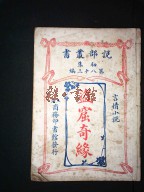 說部叢書
初集
第八十三編
言情小說
盜窟奇緣
商務印書館發行